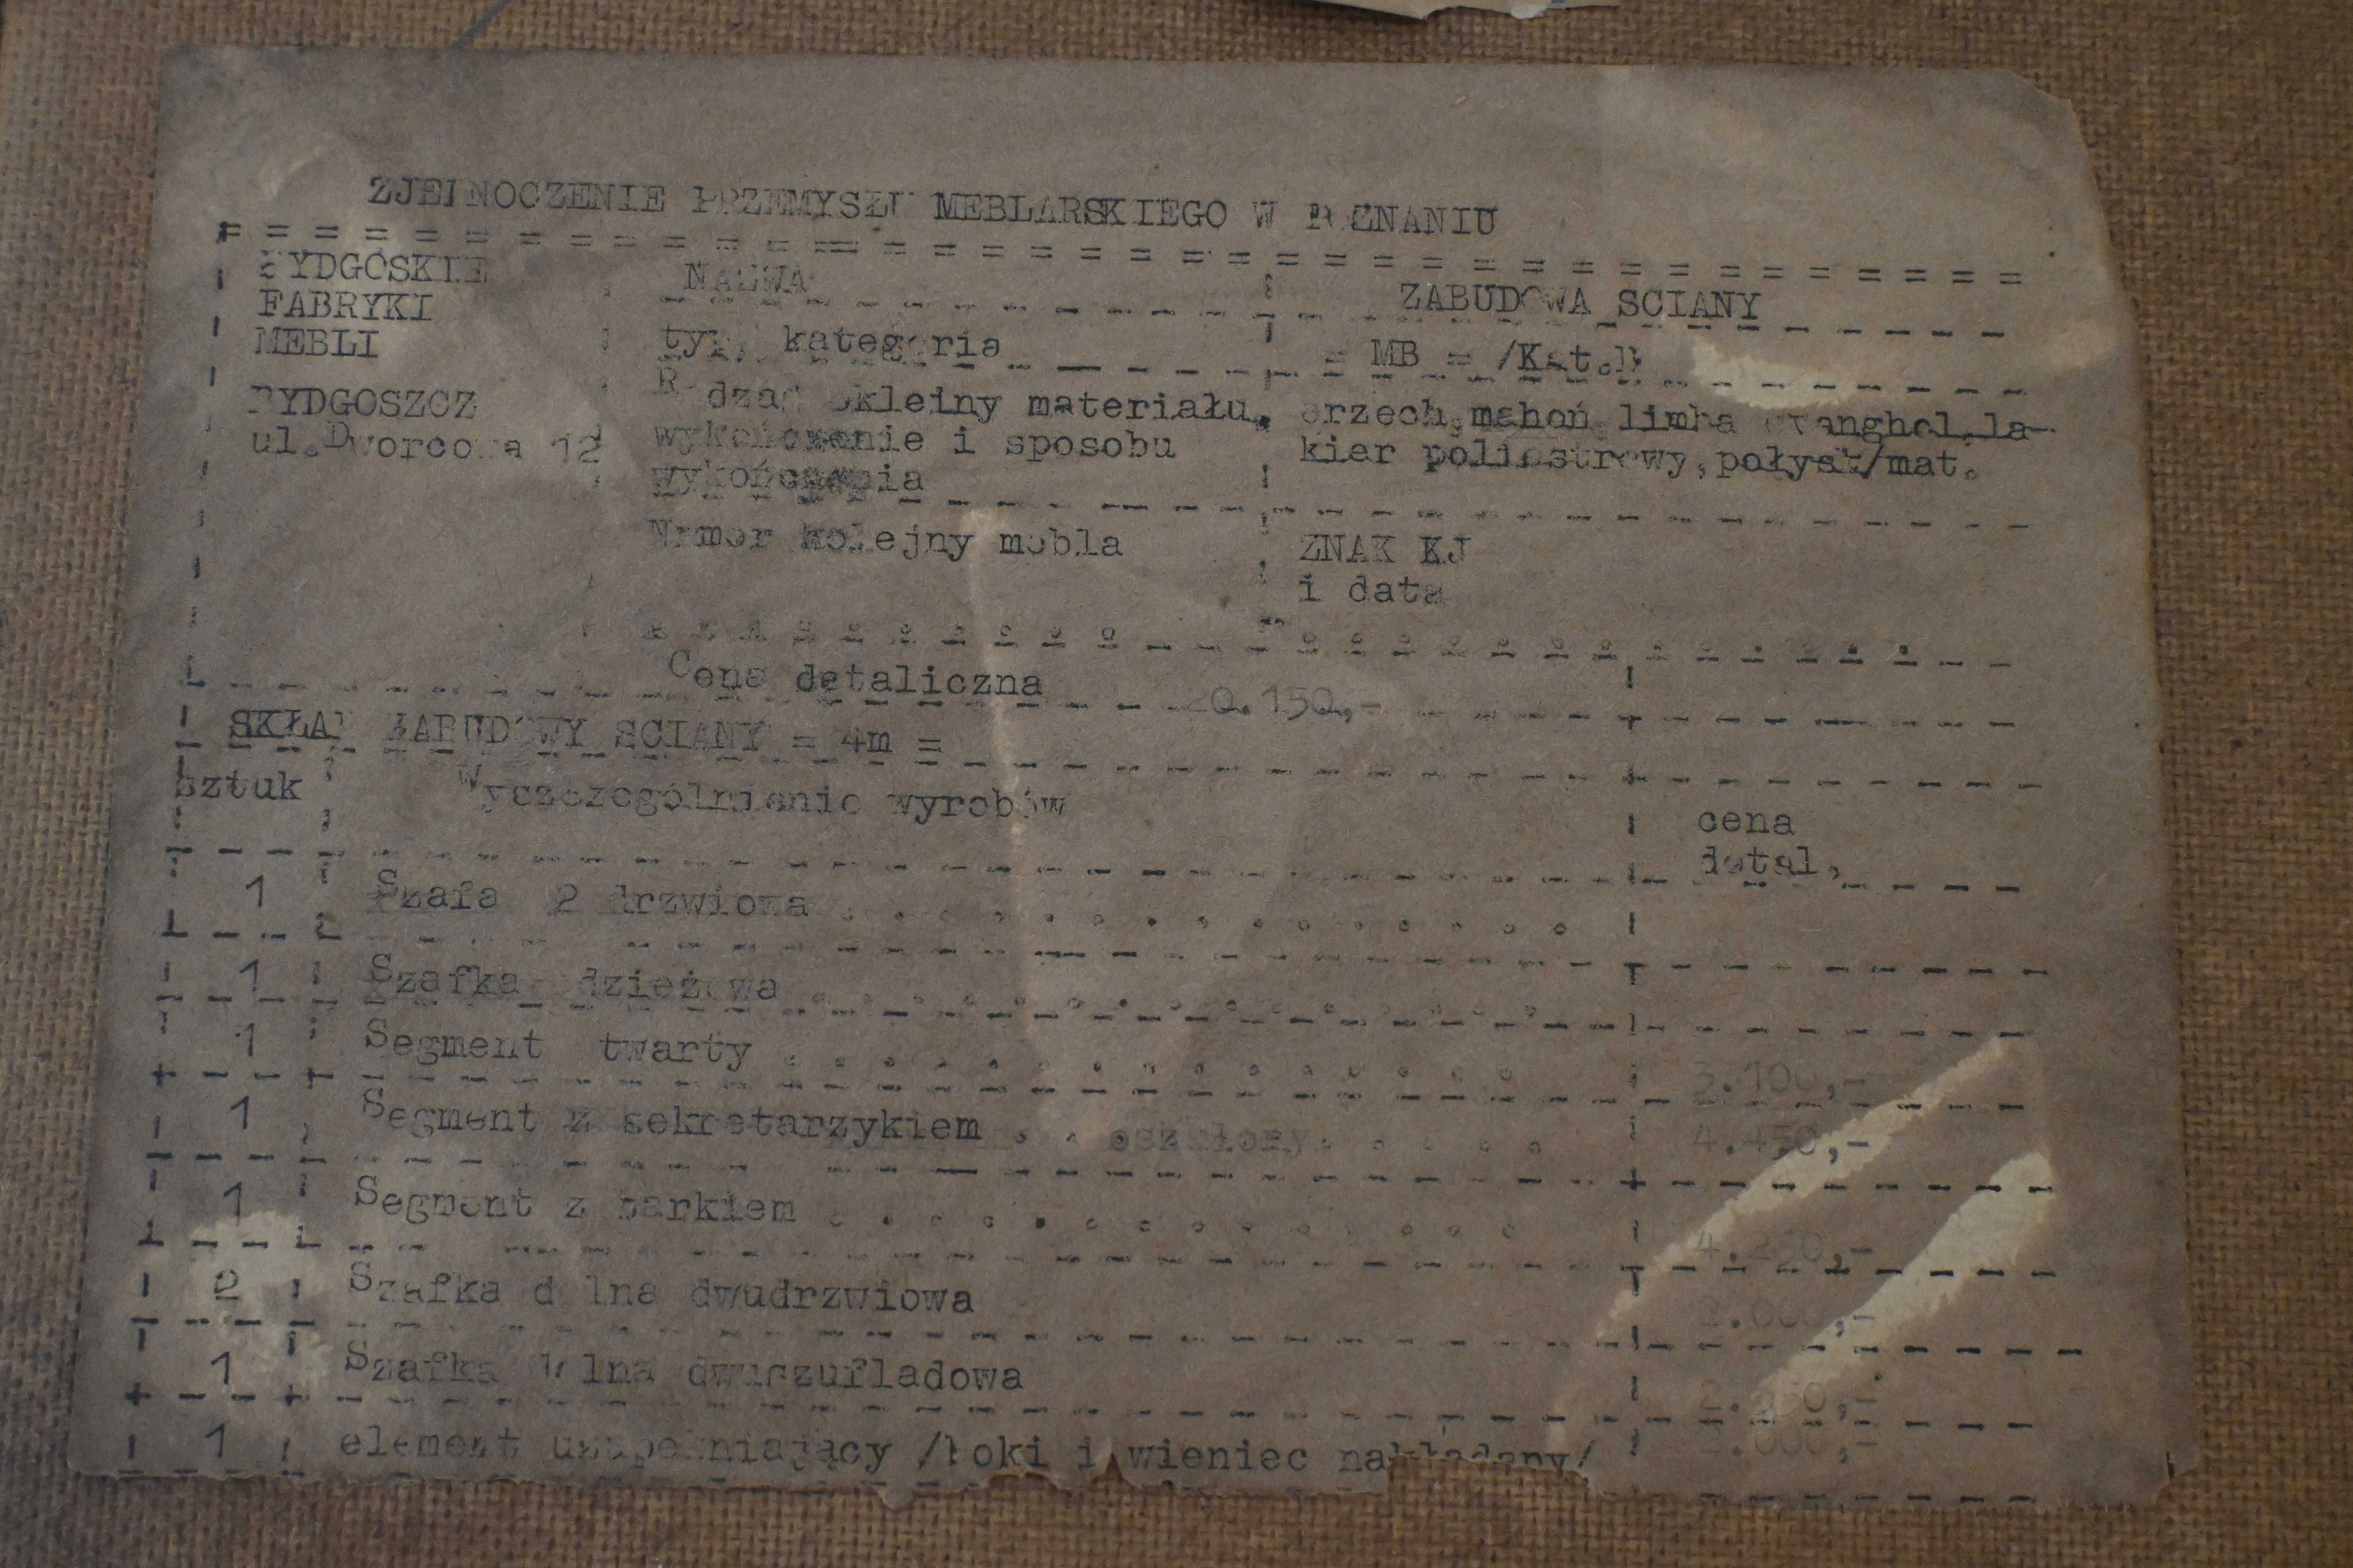 ZJEDNOCZENIE PRZEMYSŁU MEBLARSKIEGO W POZNANIU
BYDGOSKIE
FABRYKI
MEBLI
BYDGOSZCZ
ul.Dworcowa 12
NAZWA
ZABUDOWA SCIANY
typ, kategoria
= MB = /Kat.
Rodzaj okleiny materiału,
wykończenie i sposobu
wykończenia
orzech,mahoń limba la-
kier poliestrowy,połysk/mat.
Numer kolejny mebla
ZNAK KJ
i data
Cena detaliczna 20.150,-
SKŁAD ZABUDOWY SCIANY = 4m =
Sztuk Wyszczególnienie wyrobów cena
detal.
1 Szafa 2 drzwiowa
1 Szafka odzieżowa
1 Segment otwarty 3.100,-
1 Segment z sekretarzykiem oszklony 4.450,-
1 Segment z barkiem
2 Szafka dolna dwudrzwiowa
1 Szafka dolna dwuszufladowa
1 element uzupełniający /boki i wieniec nakładany/